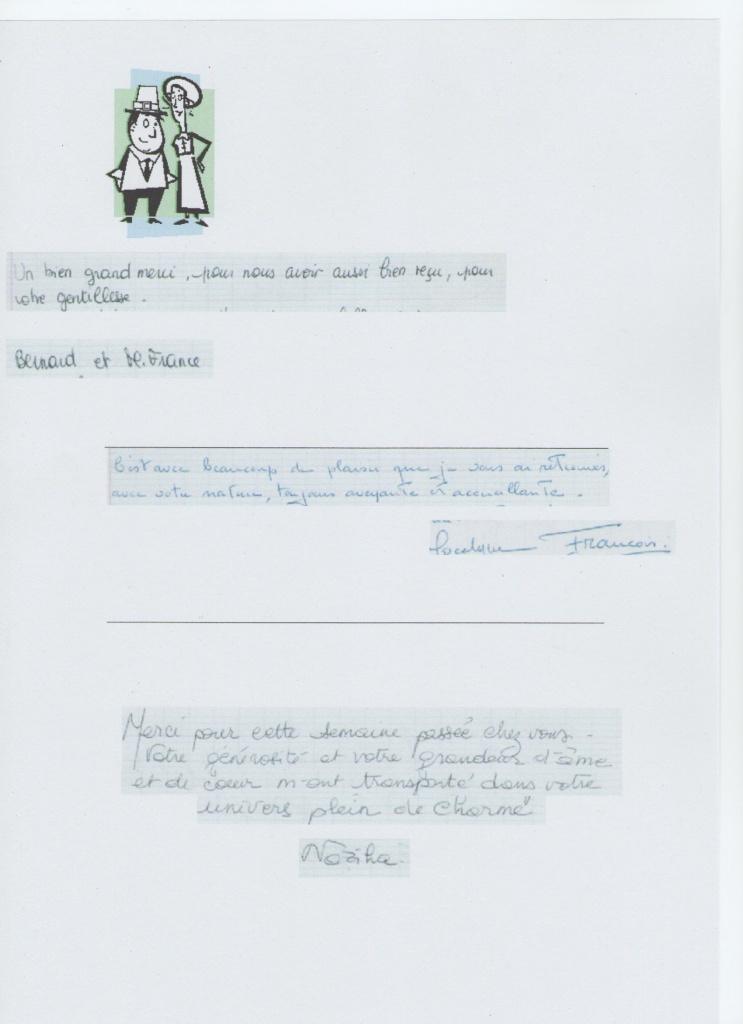 Un bien grand merci, pour nous avoir aussi bien reçu, pour
votre gentillesse.
Bernard et M. France
C'est avec beaucoup de plaisir que je vous ai retrouvés,
avec votre nature, toujours avenante et accueillante.
Jocelyne Francois.
Merci pour cette semaine passée chez vous.
Votre générosité et votre grandeur d'âme
et de coeur m'ont transporté dans votre
univers plein de charme
Naziha